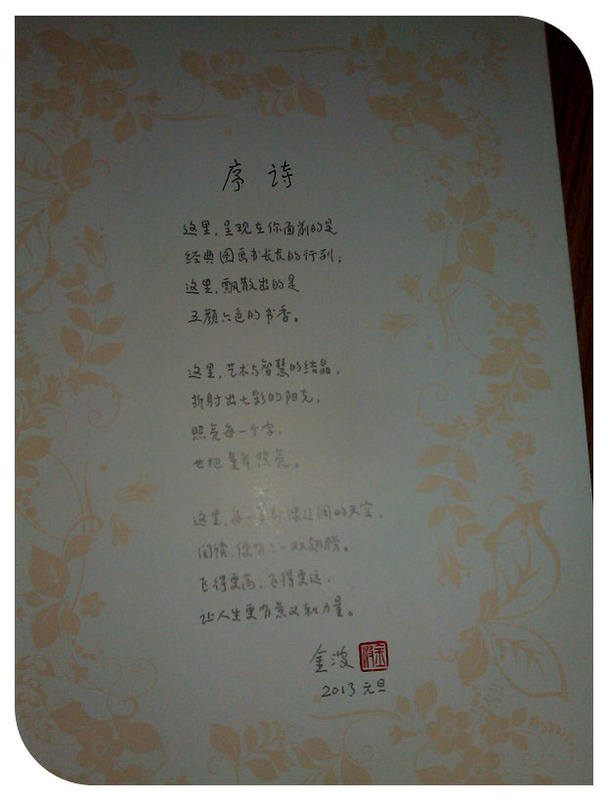 序诗
这里,呈现在你面前的是
经典图画书长长的行列;
这里,飘散出的是
五颜六色的书香。
这里,艺术与智慧的结晶,
折射出七彩的阳光,
照亮每一个字,
也把童年照亮。
这里,每一页都是辽阔的天空,
阅读,使你有一双翅膀。
飞得更高,飞得更远,
让人生更有意义和力量。
金波
金波
2013 元旦